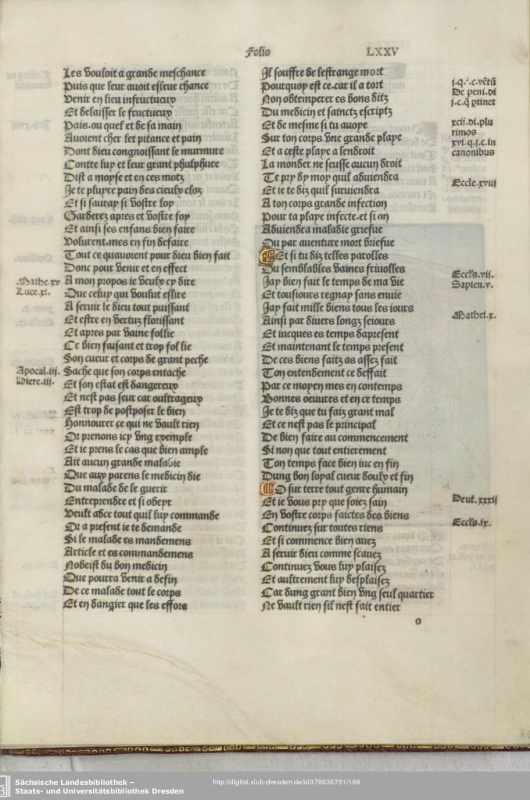 Folio LXXV
Les vouloit a grande meschance
Puis que leur avoit esleue chance
Venir en lieu infructueux
Et delaisser le fructueux
Pais ou quel et de sa main
Auoient cher let pitance et pain
Dont dieu congnoissant le murmure
Contre luy et leur grant
Dist a moyse et en ces motz
Je te pluyre pain des cieulx cloz
Et si sauray si vostre loy
Garderez apres et vostre foy
Et ainsi ses enfans bien faire
Volurent mes en fin deffaire
Tout ce quauoient pour dieu bien fait
Donc pour venir et en effect
A mon propos ie veulx cy dite
Que celuy qui voulut eslire
A seruir le dieu tout puissant
Et estre en vertuz florissant
Et apres par vaine follie
Ce bien faisant et trop follie
Son cueur et corps de grant peche
Sache que son corps entache
Et son estat est dangereux
Et nest pas seur car oultrageux
Est trop de postposer le bien
Honnourer ce qui ne vault rien
Or prenons icy vng exemple
Et ie prens le cas que bien ample
Ait aucun grande maladie
Que aux parens le medicin die
Du malade de le guerir
Entreprendre et si obeyr
Veult adce tout quil luy commande
Or a present ie te demande
Si le malade es mandemens
Article et es commandemens
Nobeist du bon medicin
Que pourra venir a defin
De ce malade tout le corps
Et en dangier que les effors
Mathe.xv
Luce.xi.
Apocal.iij.
Hiere.iij.
Il souffre de lestrange mort
Pourquoy est ce.car il a tort
Non obtemperer es bons ditz
Du medicin et sainctz escriptz
Et de mesme si tu auoye
Sur ton corps vne grande playe
Et a ceste playe a lendroit
La monder ne seusse aucun droit
Te pry dy moy quil aduiendra
Et ie te diz quil suruiendra
A ton corps grande infection
Pour ta playe infecte.et si on
Aduiendra maladie griefue
Ou par auenture mort briefue
Et si tu diz telles parolles
Ou semblables vaines friuolles
Jay bien fait le temps de ma vie
Et tousiours regnay sans enuie
Jay fait mille biens tous les iours
Ainsi par diuers longz seiours
Et iucques es temps dapresent
Et maintenant le temps present
De ces biens faitz as assez fait
Ton entendement ce deffait
Par ce moyen mes en contemps
Bonnes oeuures et en ce temps
Je te diz que tu faiz grant mal
Et ce nest pas le principal
De bien faire au commencement
Si non que tout entierement
Ton temps face bien iuc en fin
Dung bon loyal cueur douly et fin
O sur terre tout genre humain
Et ie vous pry que soiez sain
En vostre corps faictes des biens
Continuez sur toutes riens
Et si commence bien auez
A seruir dieu comme scauez
Continuez vous luy plaisez
Et aultrement luy desplaisez
Car dung grant bien vng seul quartier
Ne vault rien sil nest fait entier
j.q.
De peni.di
xcii.di.plu
rimos
xvi.q.i.c.in
canonibus
Eccle.xvij
Eccls.vii.
Sapien.v.
Mathei.x.
Deut.xxxij
Eccls.ix.
o
Sächsische Landesbibliothek –
Staats- und Universitätsbibliothek Dresden
http://digital.slub-dresden.de/id378636731/169